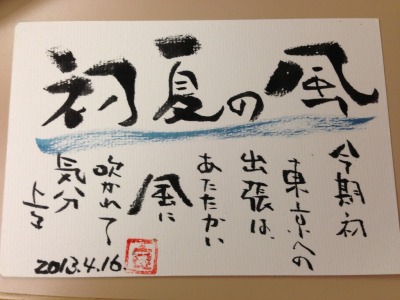 初夏の風
今期初
東京への
出張は、
あたたかい
風に
吹かれて
気分
上々
2013.4.16.